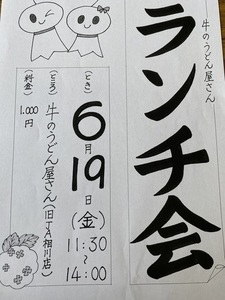 牛のうどん屋さん
ランチ会
(とき)
6月19日(金)
11:30~14:00
(ところ)
牛のうどん屋さん(旧JA相川店)
(料金)
1.000円